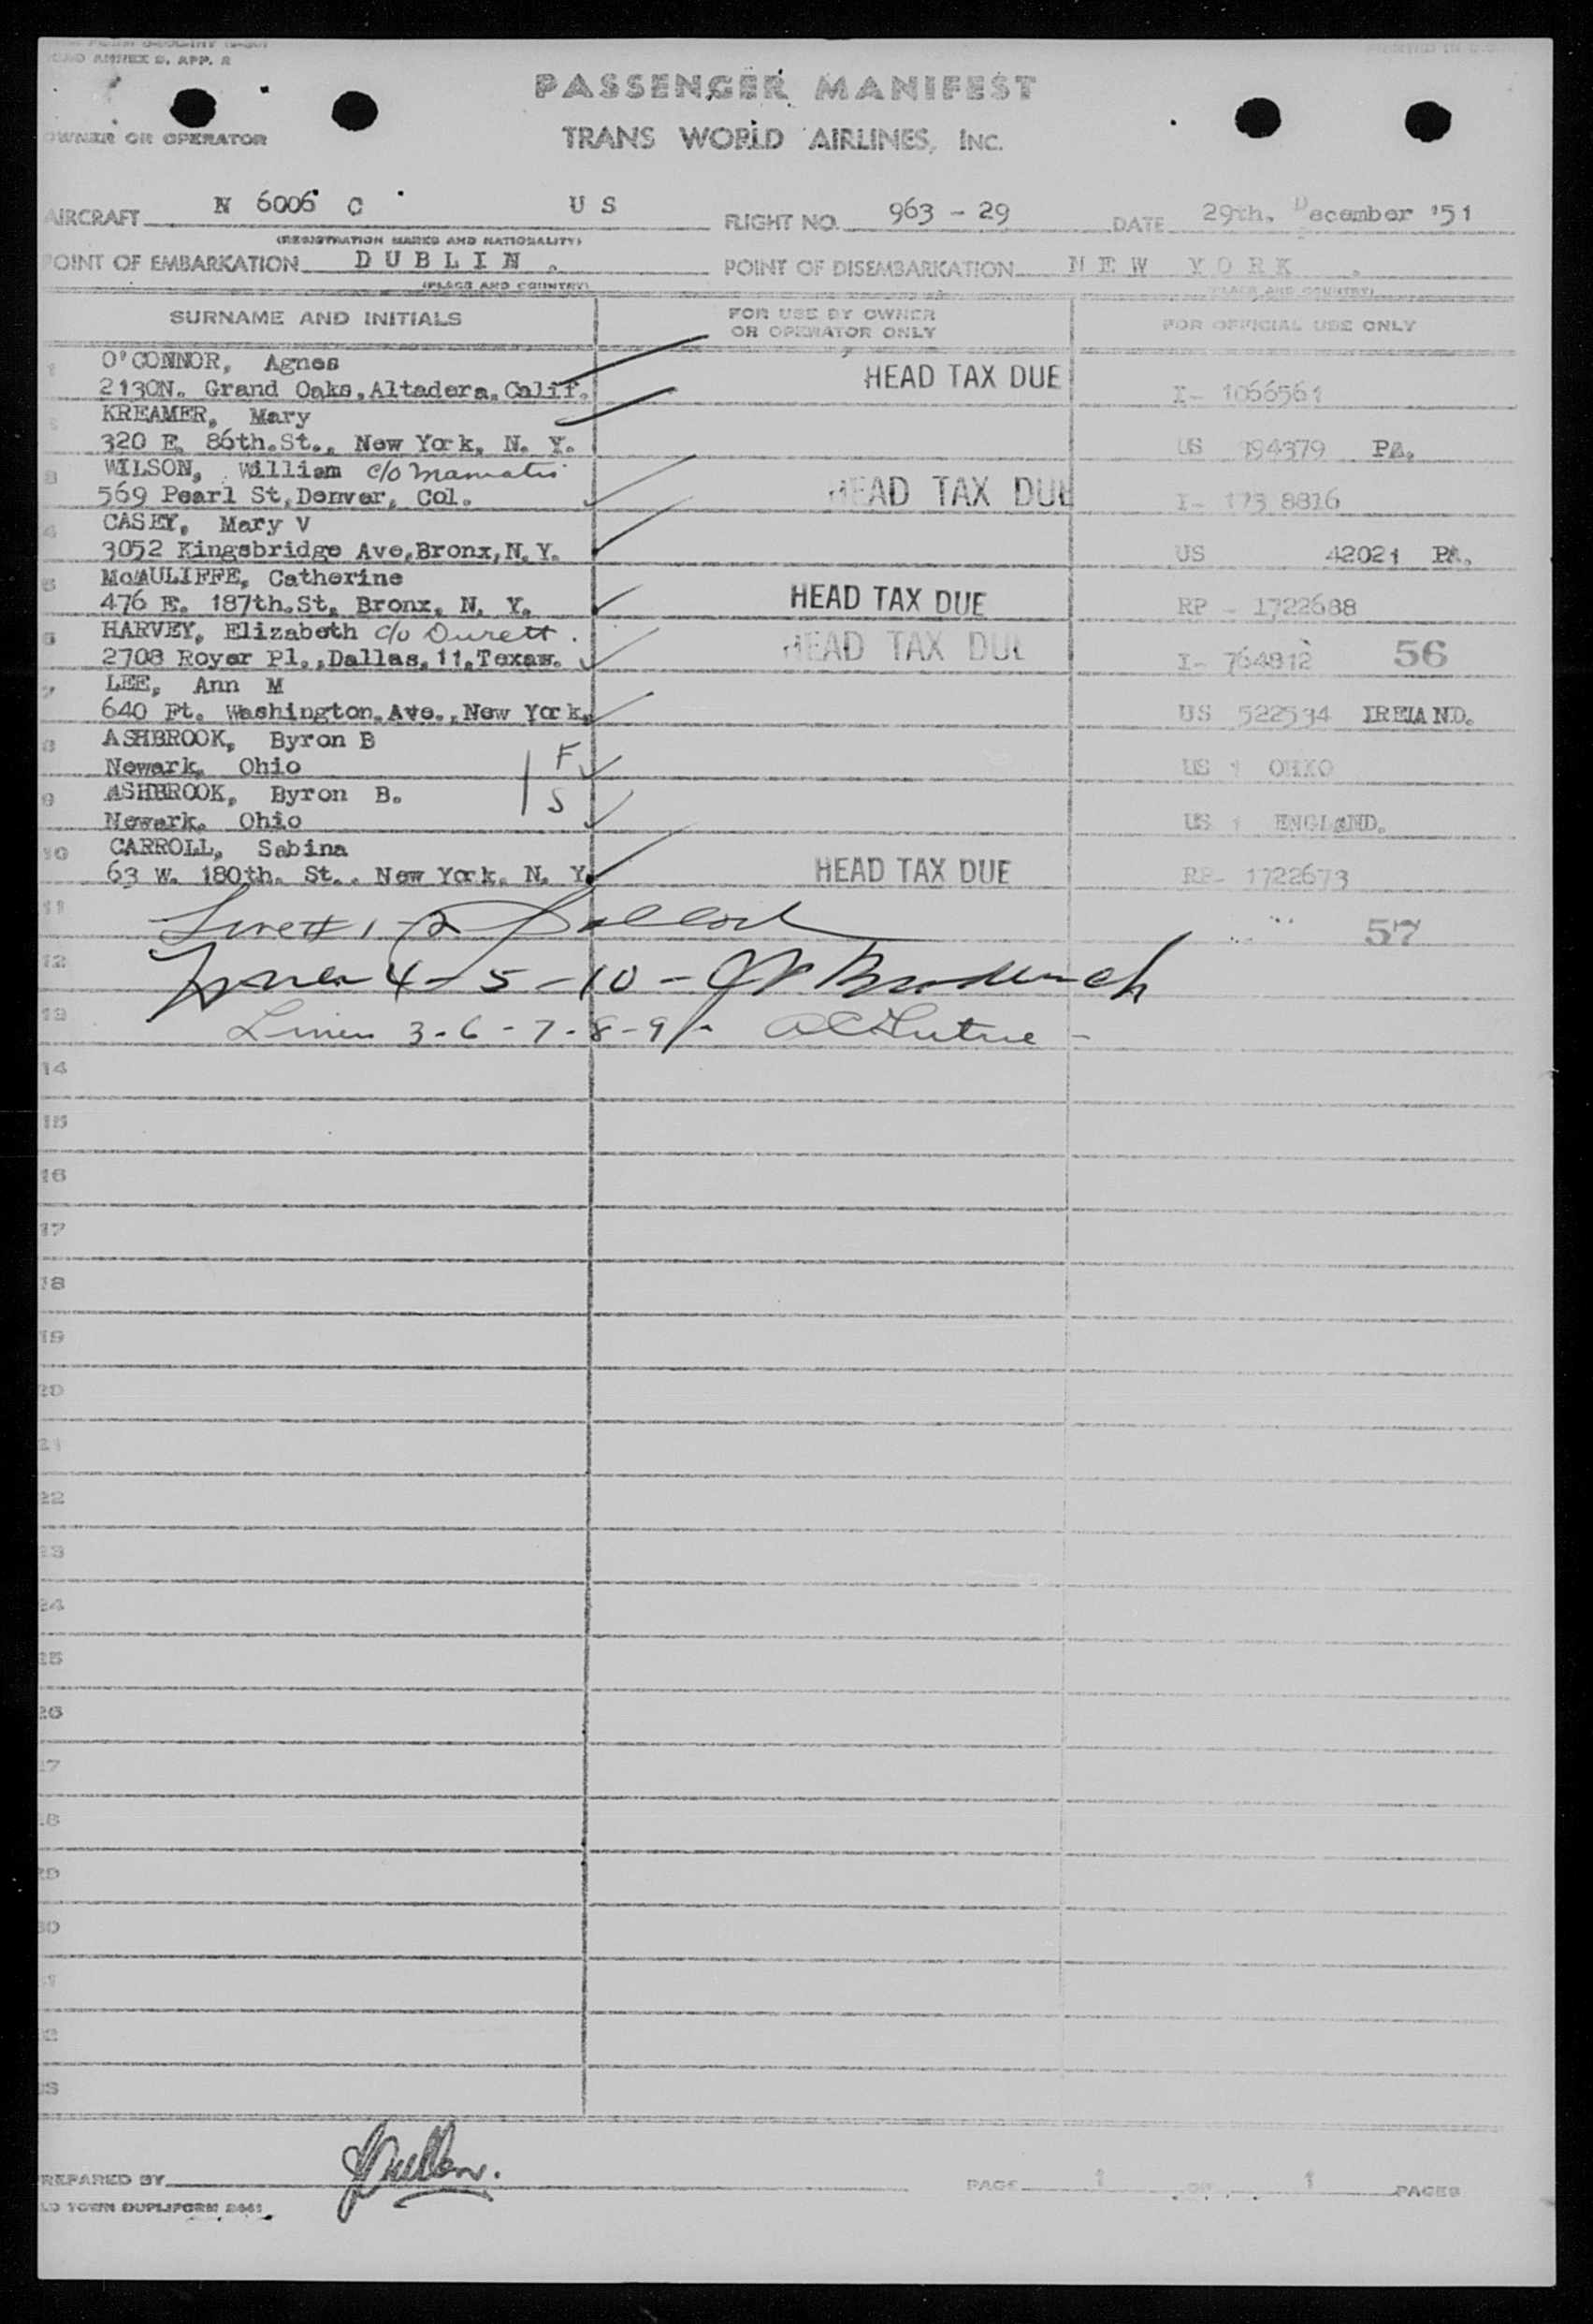 ANNEX 9, APP. 2
PASSENGER MANIFEST
OWNER OR OPERATOR
TRANS WORLD AIRLINES, INC.
AIRCRAFT N 6006 C U S FLIGHT NO. 963 - 29 DATE 29th. December '51
(REGISTRATION MARKS AND NATIONALITY)
POINT OF EMBARKATION D U B L I N . POINT OF DISEMBARKATION N E W Y O R K .
(PLACE AND COUNTRY) (PLACE AND COUNTRY)
SURNAME AND INITIALS FOR USE BY OWNER OR OPERATOR ONLY FOR OFFICIAL USE ONLY
1 O'CONNOR, Agnes
2130N. Grand Oaks, Altadera, Calif. HEAD TAX DUE I- 1066561
2 KREAMER, Mary
320 E. 86th.St., New York, N. Y. US 994379 PA.
3 WILSON, William c/o
569 Pearl St, Denver, Col. HEAD TAX DUE I- 173 8816
4 CASEY, Mary V
3052 Kingsbridge Ave, Bronx, N.Y. US 42021 PA.
5 McAULIFFE, Catherine
476 E. 187th.St, Bronx, N. Y. HEAD TAX DUE RP - 1722688
6 HARVEY, Elizabeth c/o Durett.
2708 Royer Pl., Dallas, 11, Texas. HEAD TAX DUE I- 764812 56
7 LEE, Ann M
640 Ft. Washington. Ave., New York, US 522534 IRELAND.
8 ASHBROOK, Byron B F
Newark, Ohio US 1 OHIO
9 ASHBROOK, Byron B. S
Newark, Ohio US 1 ENGLAND.
10 CARROLL, Sabina
63 W. 180th. St., New York, N. Y. HEAD TAX DUE RP- 1722673
11 Lines 1-2 57
12 Lines 4-5-10-
13 Lines 3-6-7-8-9-
14
15
16
17
18
19
20
21
22
23
24
25
26
27
28
29
30
31
32
33
PREPARED BY PAGE 1 OF 1 PAGES
OLD TOWN DUPLIFORM 2441